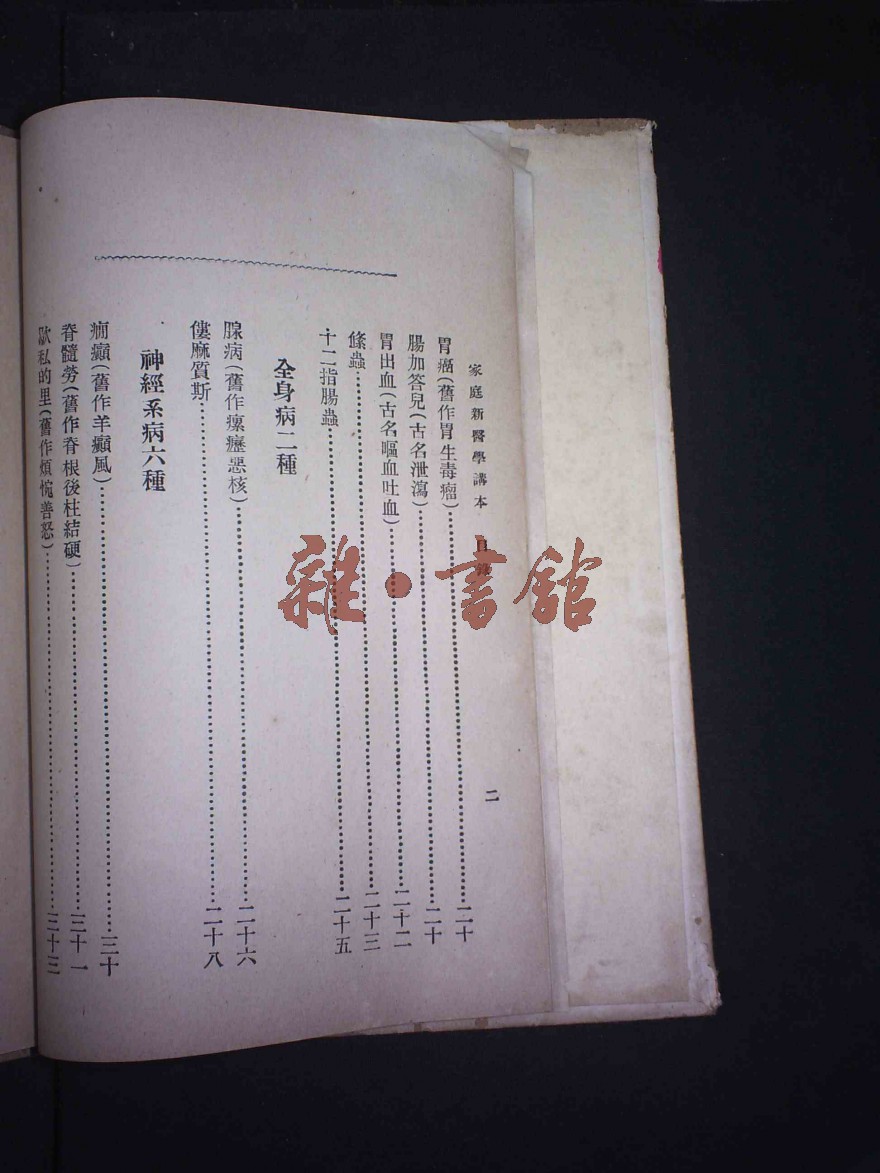 家庭新醫學講本 目錄 二
胃癌(舊作胃生毒瘤)二十
腸加答兒(古名泄瀉)二十
胃出血(古名嘔血吐血)二十二
絛蟲二十三
十二指腸蟲二十五
全身病二種
腺病(舊作瘰癧惡核)二十六
僂麻質斯二十八
神經系病六種
癇癲(舊作羊癲風)三十
脊髓勞(舊作脊根後柱結硬)三十一
歇私的里(舊作煩惋善怒)三十三
雜·書館